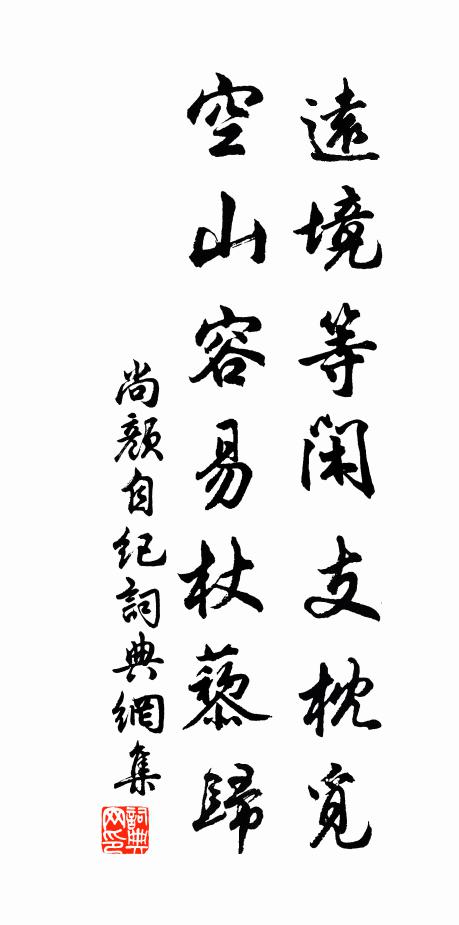 遠境等閑支枕覓
空山容易杖藜歸
尚顏自紀詞典網集
詞典網印